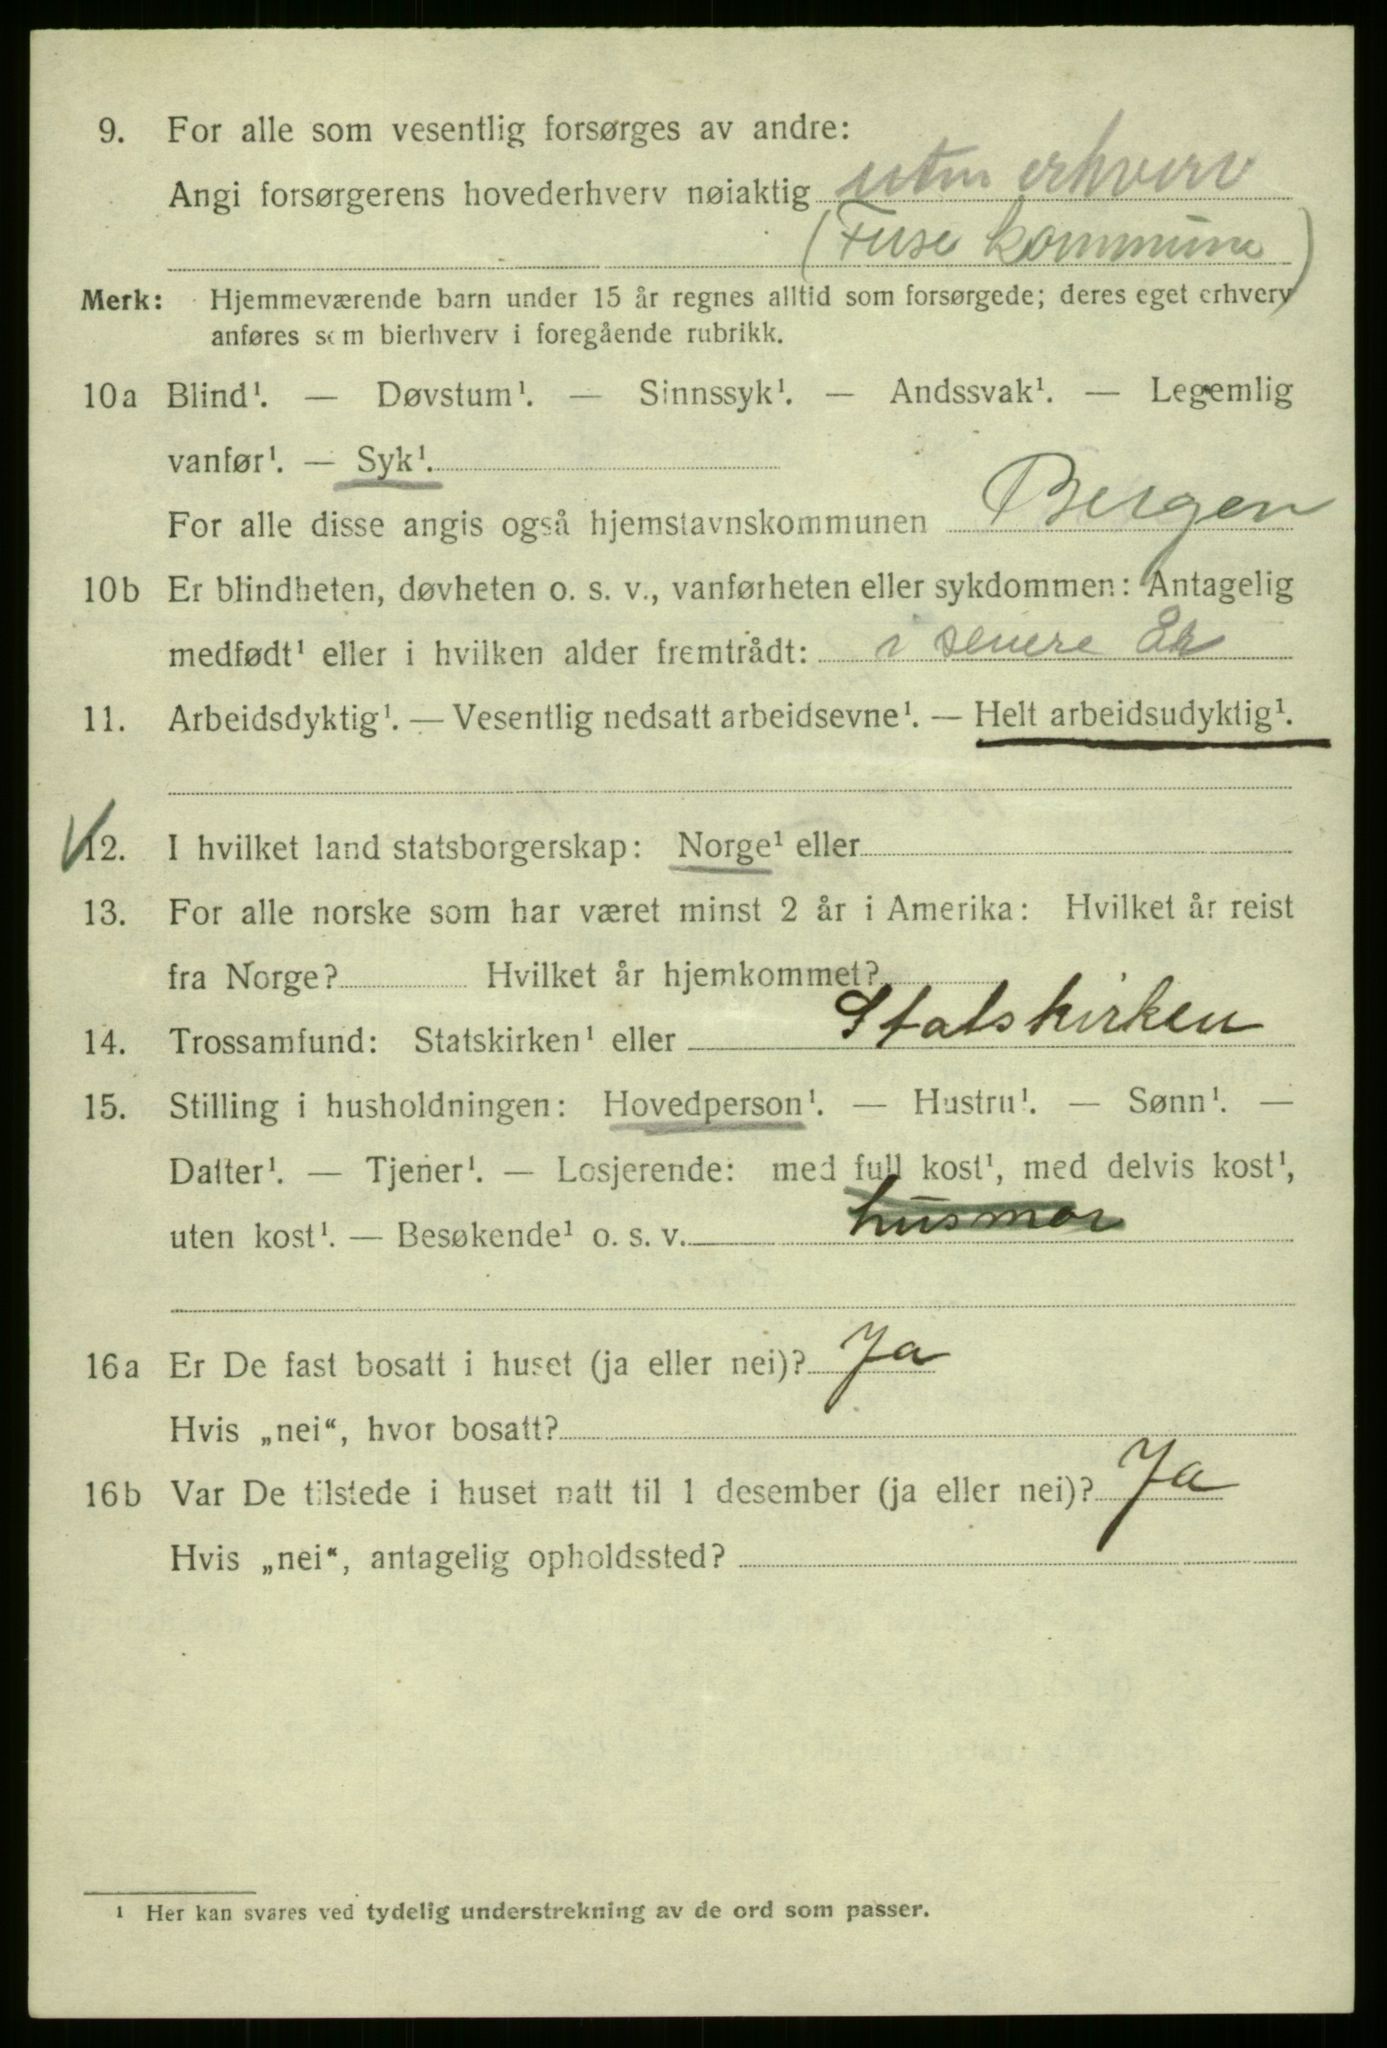 9. For alle som vesentlig forsørges av andre:
Angi forsørgerens hovederhverv nøiaktig uten erhverv
(Fuse kommune)
Merk: Hjemmeværende barn under 15 år regnes alltid som forsørgede; deres eget erhverv
anføres som bierhverv i foregående rubrikk.
10a Blind¹. — Døvstum¹. — Sinnssyk¹. — Andssvak¹. — Legemlig
vanfør¹. — Syk¹.
For alle disse angis også hjemstavnskommunen Bergen
10b Er blindheten, døvheten o. s. v., vanførheten eller sykdommen: Antagelig
medfødt¹ eller i hvilken alder fremtrådt: i senere
11. Arbeidsdyktig¹. — Vesentlig nedsatt arbeidsevne¹. — Helt arbeidsudyktig¹.
12. I hvilket land statsborgerskap: Norge¹ eller
13. For alle norske som har været minst 2 år i Amerika: Hvilket år reist
fra Norge? Hvilket år hjemkommet?
14. Trossamfund: Statskirken¹ eller Statskirken
15. Stilling i husholdningen: Hovedperson¹. — Hustru¹. — Sønn¹. —
Datter¹. — Tjener¹. — Losjerende: med full kost¹, med delvis kost¹,
uten kost¹. — Besøkende¹ o. s. v. husmor
16a Er De fast bosatt i huset (ja eller nei)? Ja
Hvis „nei“, hvor bosatt?
16b Var De tilstede i huset natt til 1 desember (ja eller nei)? Ja
Hvis „nei“, antagelig opholdssted?
¹ Her kan svares ved tydelig understrekning av de ord som passer.